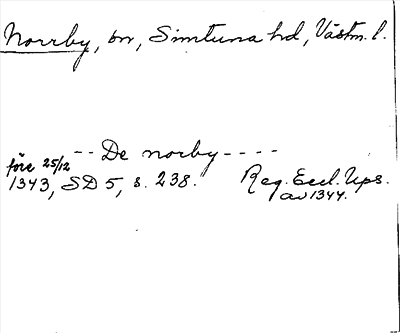 Norrby, sn, Simtuna hd, Västm. l.
-- De norby ----
före 25/12
1343, SD 5, s. 238. Reg. Eccl. Ups.
av 1344.